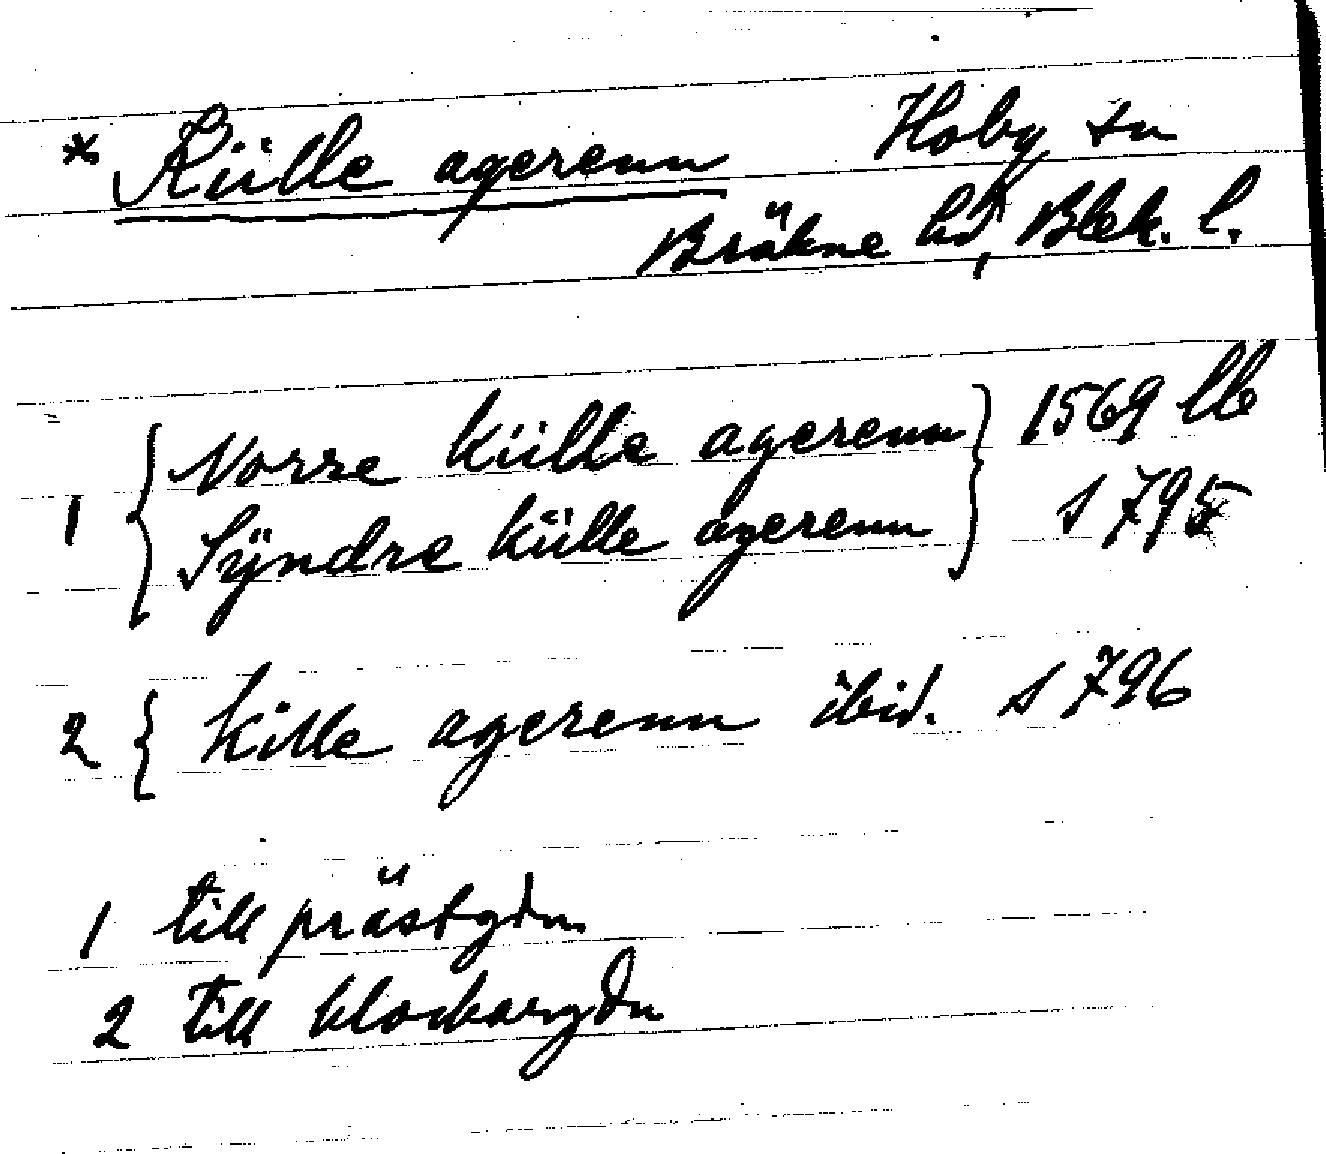 * Külle agerenn Hoby sn
Bräkne hd, Blek. l.
1 { Norre Külle agerenn } 1569 lb
Sÿndre Külle agerenn s 795
2 { Kille agerenn ibid. s 796
1 till prästgdn
2 till klockargdn